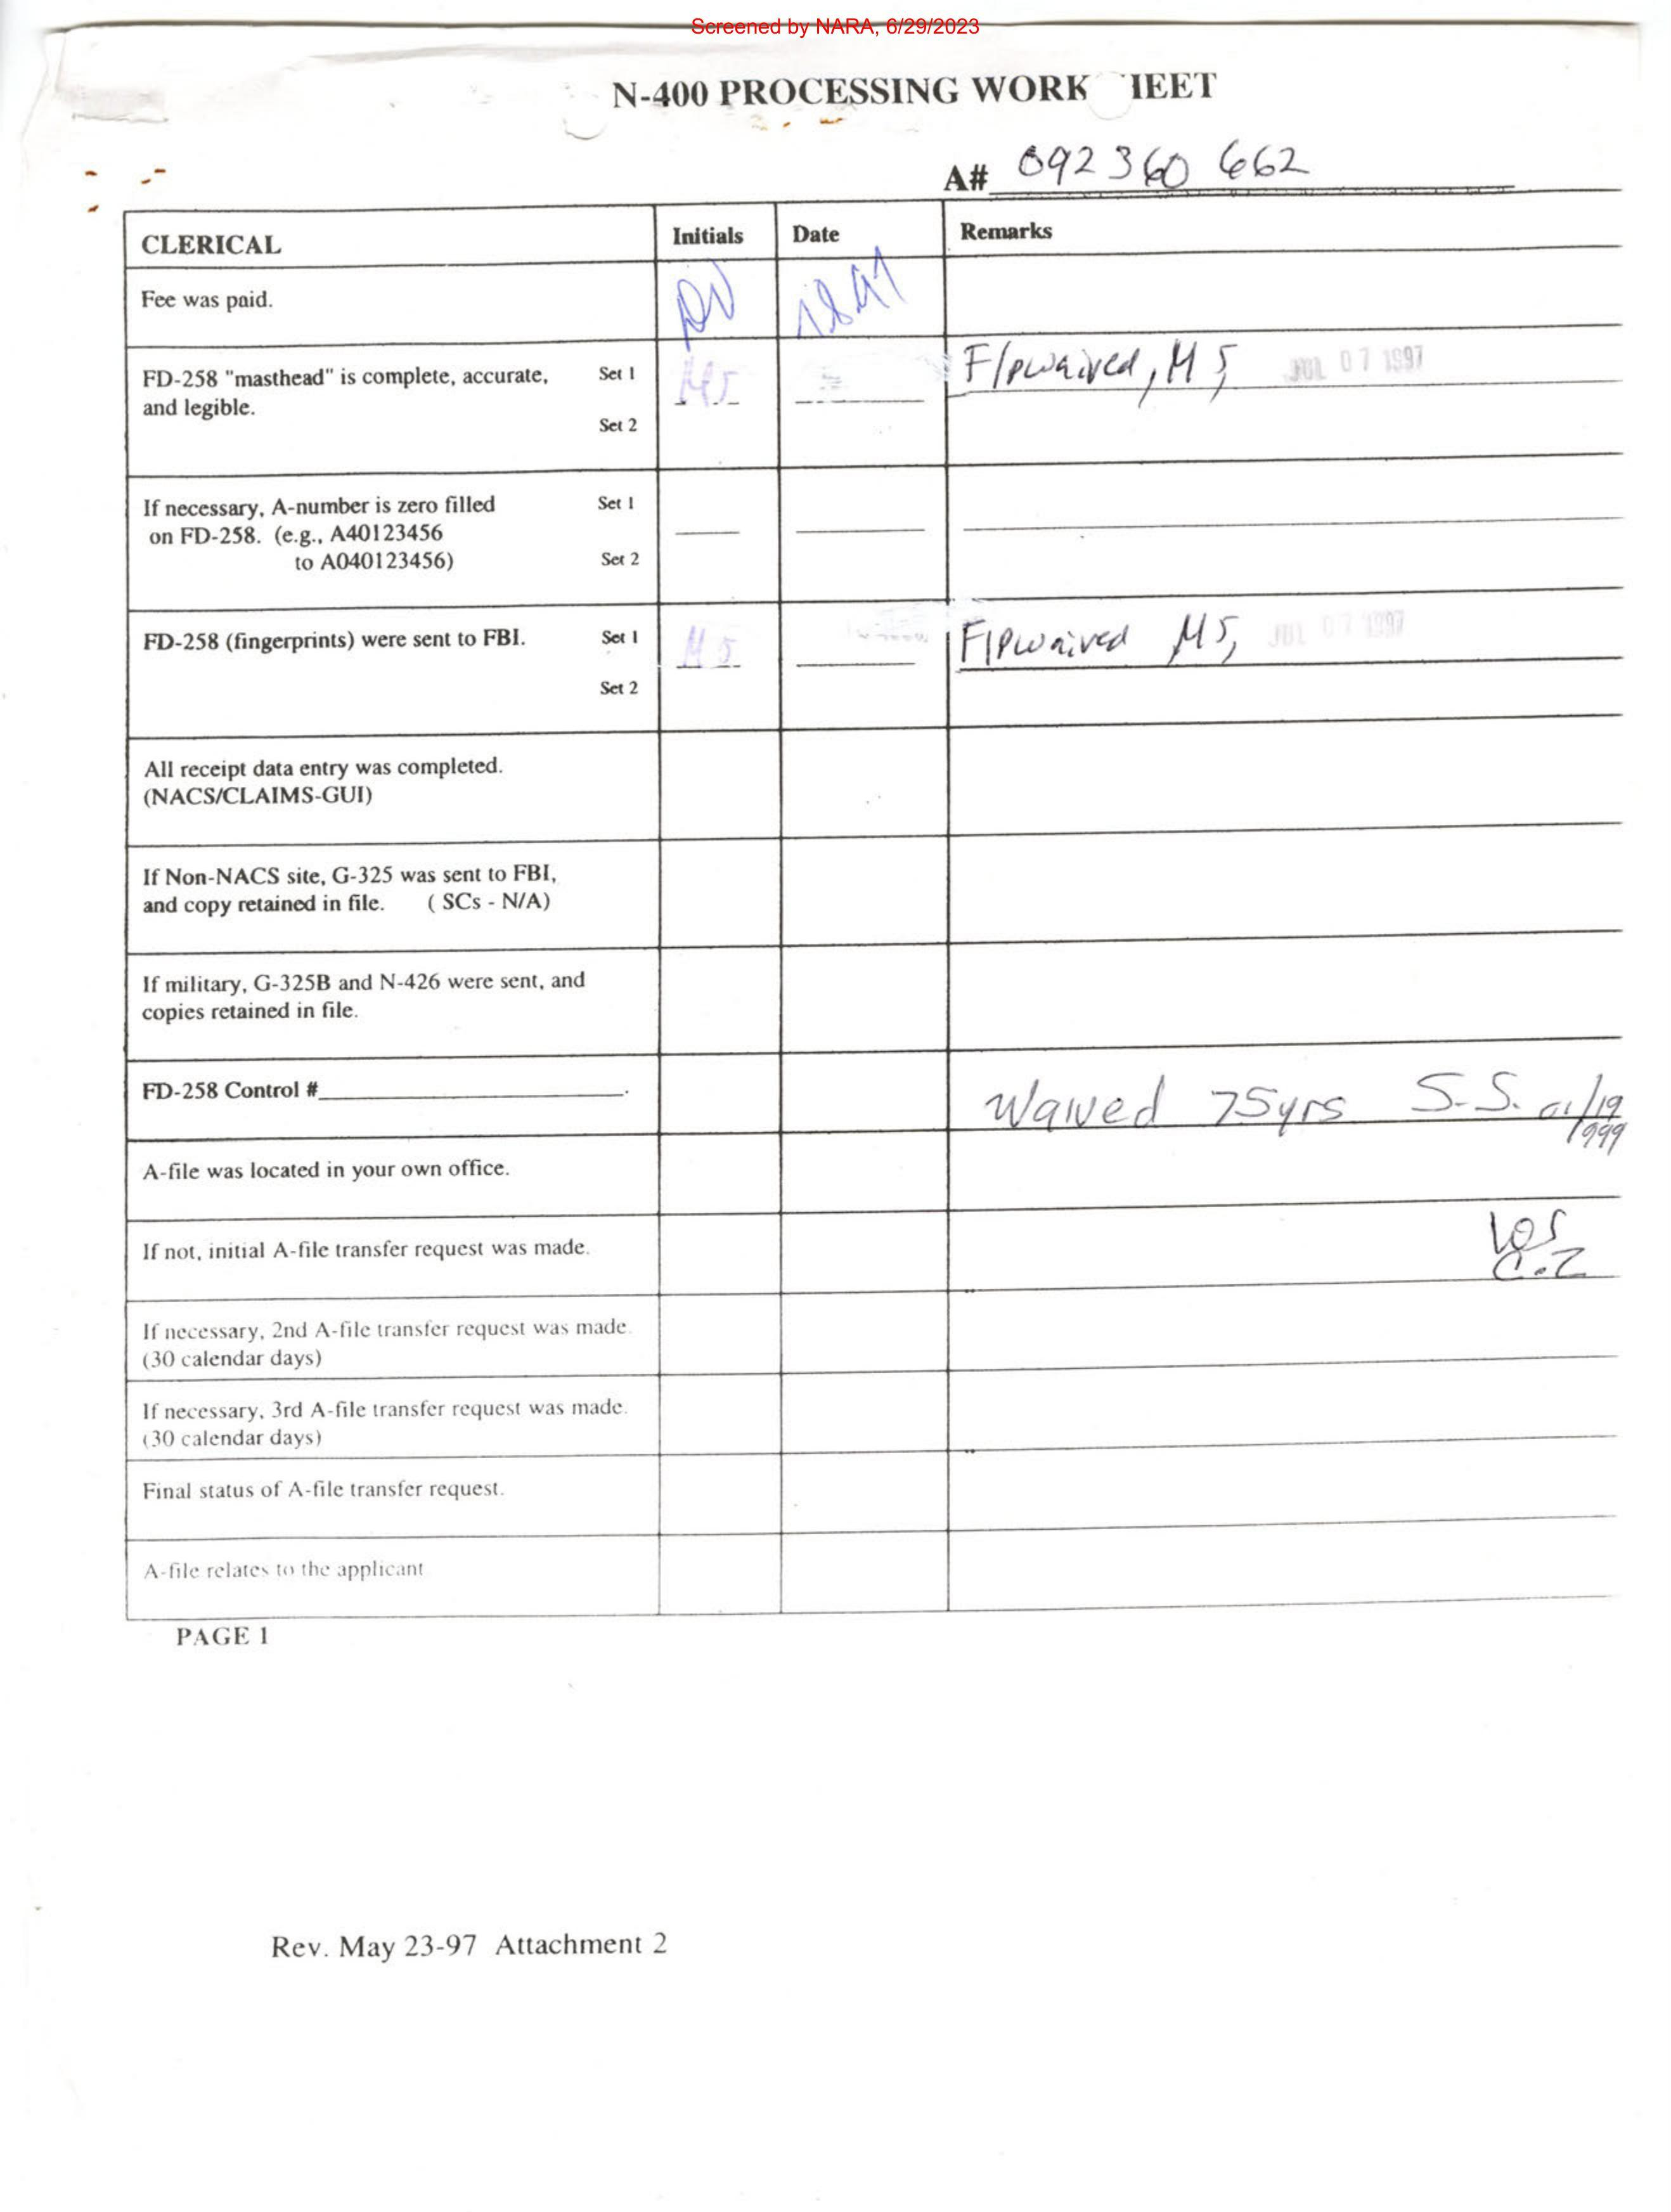 Screened by NARA, 6/29/2023
N-400 PROCESSING WORK IEET
A# 092 360 662
CLERICAL Initials Date Remarks
Fee was paid.
FD-258 "masthead" is complete, accurate, Set 1 MS F/pwaived, MS, JUL 07 1997
and legible.
Set 2
If necessary, A-number is zero filled Set 1
on FD-258. (e.g., A40123456
to A040123456) Set 2
FD-258 (fingerprints) were sent to FBI. Set 1 MS F/pwaived MS, JUL 07 1997
Set 2
All receipt data entry was completed.
(NACS/CLAIMS-GUI)
If Non-NACS site, G-325 was sent to FBI,
and copy retained in file. ( SCs - N/A)
If military, G-325B and N-426 were sent, and
copies retained in file.
FD-258 Control # . Waived 75yrs S.S. 01/19
1999
A-file was located in your own office.
If not, initial A-file transfer request was made.
If necessary, 2nd A-file transfer request was made.
(30 calendar days)
If necessary, 3rd A-file transfer request was made.
(30 calendar days)
Final status of A-file transfer request.
A-file relates to the applicant
PAGE 1
Rev. May 23-97 Attachment 2